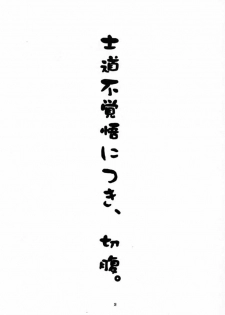 士道不覚悟につき、切腹。